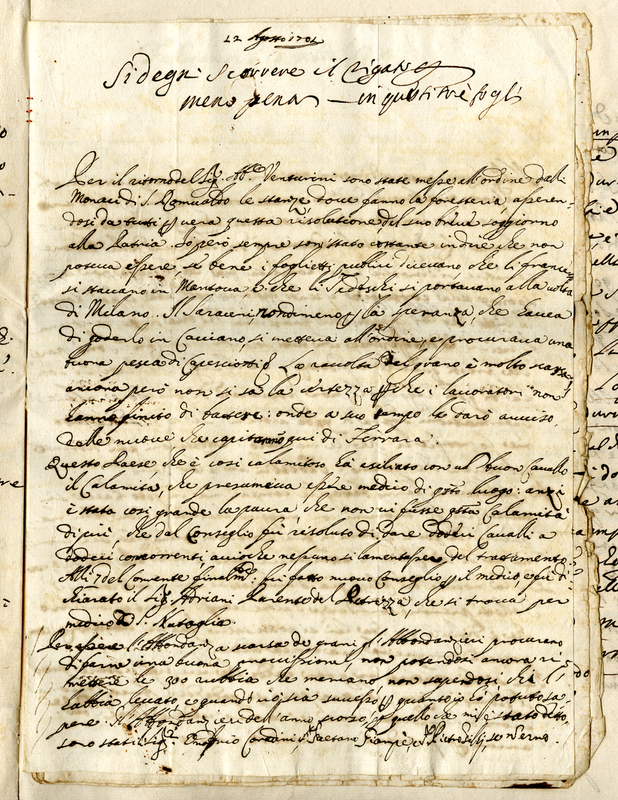 22 Agosto 1704
Si degni scorrere il
meno pena in questi tre fogli
Per il ritorno del Sig. Venturini sono state messe all'ordine dalli
Monaci di S. Romualdo le stanze dove fanno la foresteria asseren-
dosi da tutti vera questa risolutione del suo breve soggiorno
alla Patria. Io però sempre son stato costante in dire che non
poteva essere se bene i foglietti publici dicevano che li francesi
si stavano in Mantova e che li Tedeschi si portavano alla volta
di Milano. Il Saraceni nondimeno la speranza, che haveva
di goderlo in Cacciano si metteva all'ordine, e procurava una
buona pesca di La raccolta del grano è molto scarsa
ancora però non si sa la certezza che i lavoratori non
hanno finito di battere: onde a suo tempo le darò avviso
delle nuove che capitaranno qui di Ferrara.
Questo Paese che è così calamitoso ha esiliato con un buon Cavallo
il Calamita, che presumeva essere medico di questo luogo: anzi
è stata così grande la paura che non vi fusse questa Calamità
di più, che dal Conseglio fù risoluto di dare dodeci Cavalli a
dodeci concorrenti, acciò che nessuno si lamentasse del trattamento
Alli 7 del Corrente finalm.te fu fatto nuovo Conseglio il medico e fù di-
chiarato il Sig. Adriani Parente del che si trova per
medico a S. Natoglia.
Per essere l'Abbondanza scarsa de grani gl'Abbondanzieri procurano
di farne una buona provvissione, non potendosi ancora ri-
mettere le 300 rubbia che mancano non sapendosi chi l'
habbia levato, e quando ciò sia successo quanto io ho potuto sa-
pere. Abbondanzieri dell'anno scorso, quello che mi è stato detto,
sono stati Sig. Cordini Gaetano